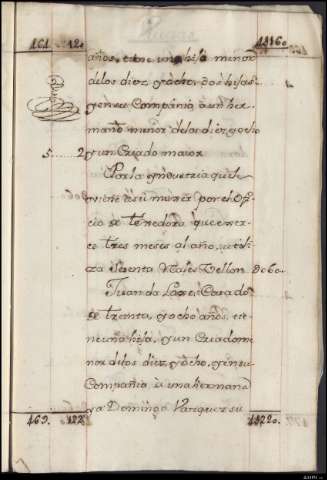 161. 12. 1316o.
años, tiene una hija menor
de los diez, y ocho, dos hijas
y en su Compañia, a un her-
mano menor de los diez, y ocho
5 2 y un Criado maior.
Por la yndustria que le
viene a su muger por el Ofi-
cio de tendera, que exer-
ce tres meses al año, utili-
za sesenta Reales Vellon. " 060.
Juan da Laxe, Casado
de treinta, y ocho años, tie-
ne una hija, y un Criado me-
nor de los diez, y ocho, y en su
Compañia a una hermana
ya Dominga Vazquez su
163. 122. 1322o.